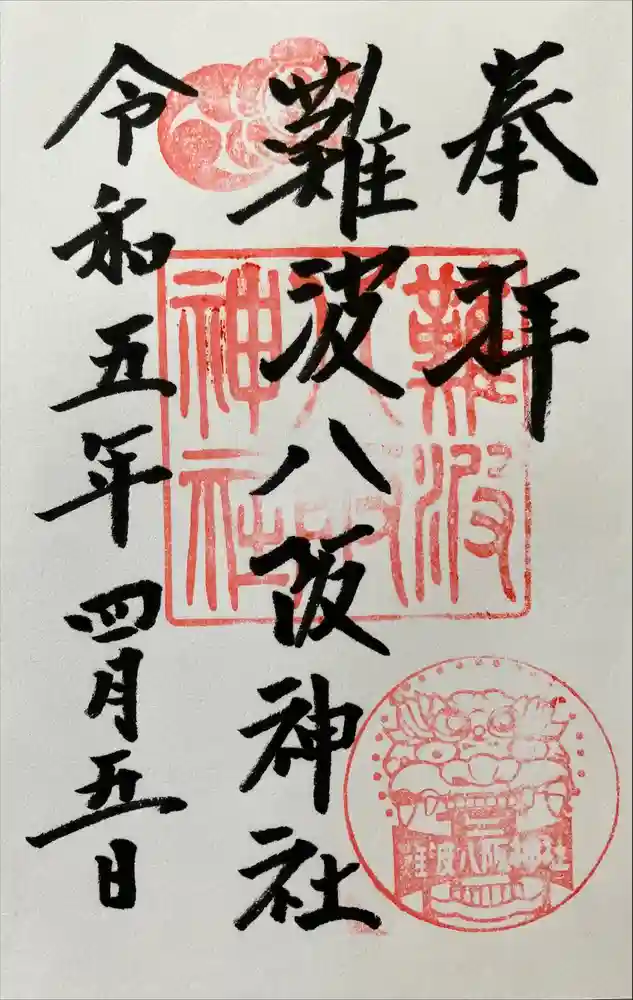 奉拝
難波八阪神社
令和五年四月五日
難波
八阪
神社
難波八阪神社